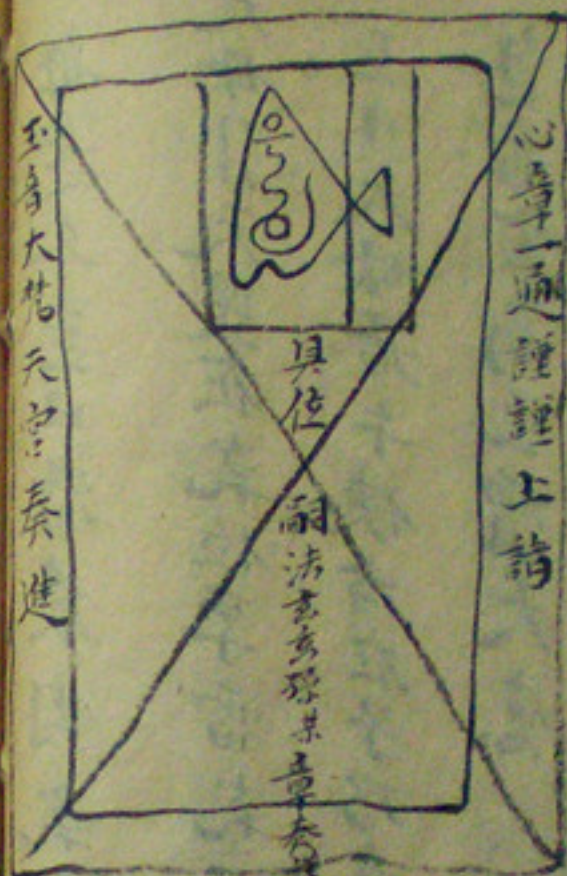 心章一通謹謹上詣
具位
嗣法玄玄孫某章奏
玉音大梵天宮奏進